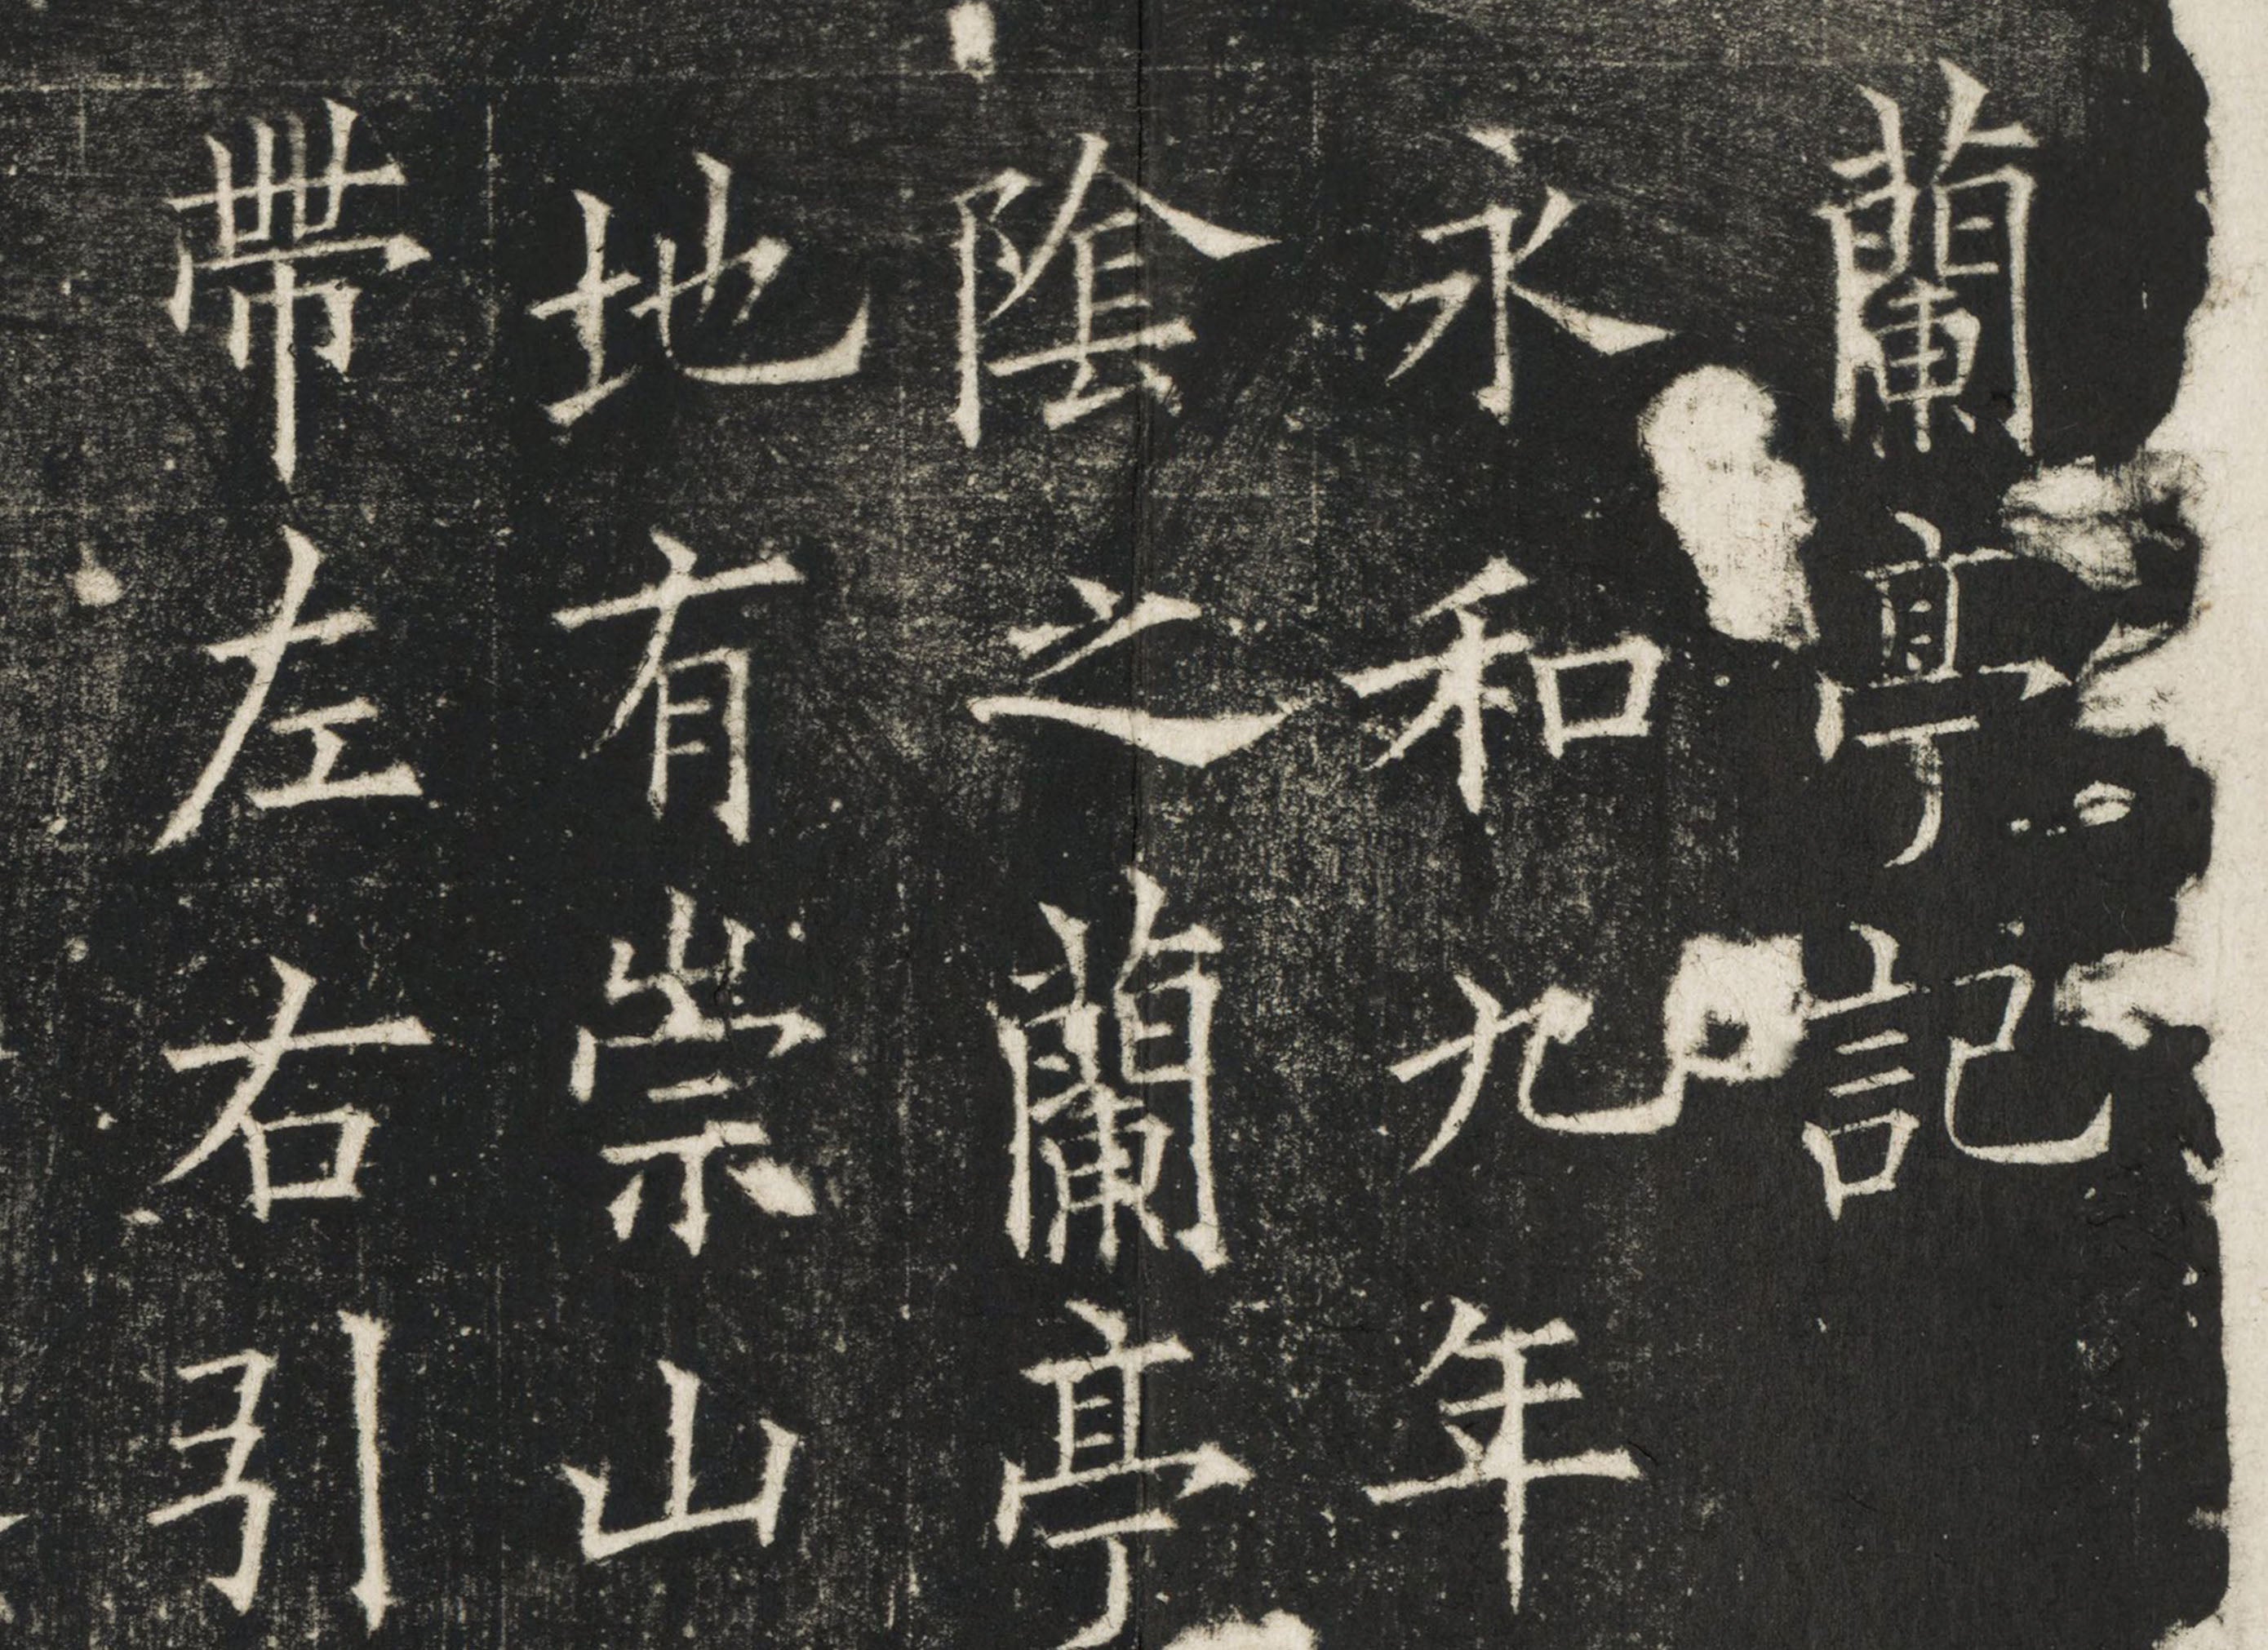 蘭亭記
永和九年
陰之蘭亭
地有崇山
帶左右引